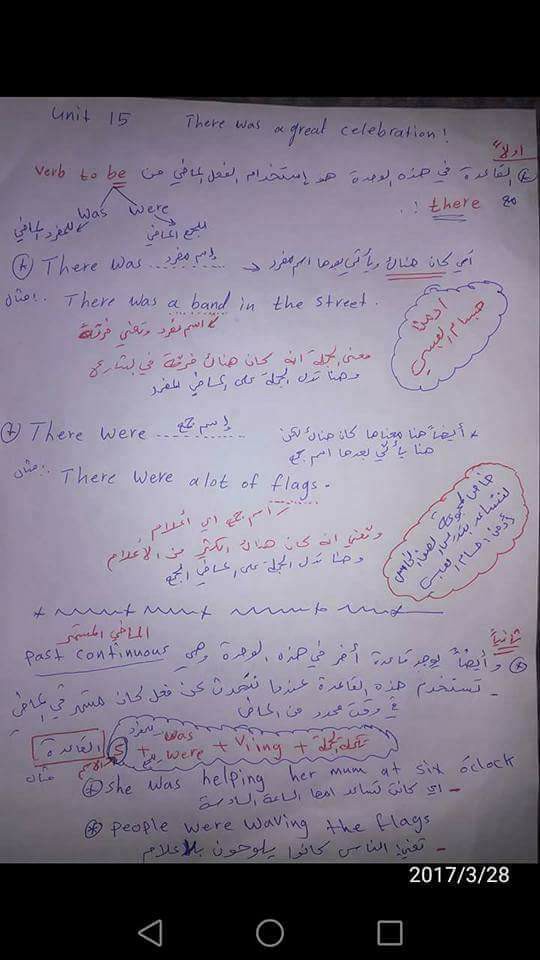 Unit 15 There was a great celebration!
اولاً
القاعدة في هذه الوحدة هو إستخدام الفعل الماضي من verb to be
مع there :.
was were
للمفرد الماضي للجمع الماضي
There was ........ إسم مفرد أي كان هناك ويأتي بعدها اسم مفرد
مثال :. There was a band in the street.
اسم مفرد وتعني فرقة
معنى الجملة انه كان هناك فرقة في الشارع
وهنا تدل الجملة على الماضي المفرد
ادمن
حسام العبسي
There were ........ إسم جمع
* أيضاً هنا معناها كان هناك لكن
هنا يأتي بعدها اسم جمع
مثال :. There were alot of flags.
اسم جمع اي أعلام
وتعني انه كان هناك الكثير من الأعلام
وهنا تدل الجملة على الماضي الجمع
خاص لمجموعة
لنتساعد بتدريس الصف الخامس
أدمن : حسام العبسي
ثانياً
الماضي المستمر
وأيضاً يوجد قاعدة أخر في هذه الوحدة وهي past continuous
- تستخدم هذه القاعدة عندما نتحدث عن فعل كان مستمر في الماضي
في وقت محدد من الماضي
القاعدة S + was were + V1ing + تكملة الجملة
للمفرد جمع الاسم
مثال
she was helping her mum at six óclock
- اي كانت تساعد امها الساعة السادسة
people were waving the flags
- تعني: الناس كانوا يلوحون بالاعلام
2017/3/28